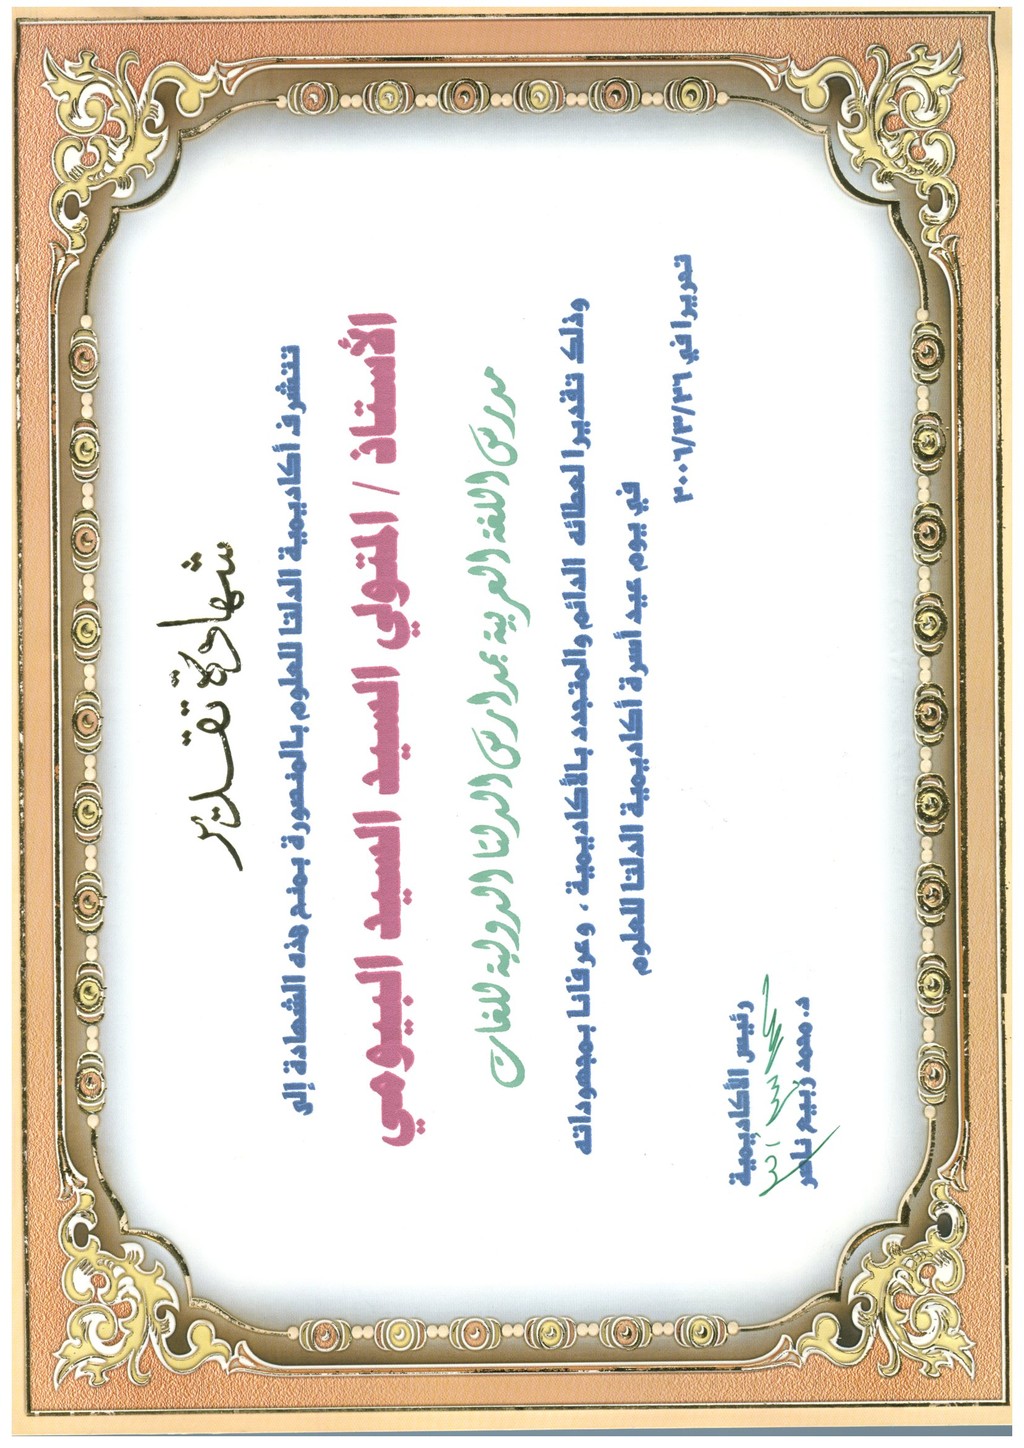 شهادة تقدير
تتشرف أكاديمية الدلتا للعلوم بالمنصورة بمنح هذه الشهادة إلى
الأستاذ / المتولي السيد السيد البيومي
مدرس اللغة العربية بمدارس الدلتا الدولية للغات
وذلك تقديرا لعطائه الدائم والمتجدد بالأكاديمية ، وعرفانا بمجهوداته
في يوم عيد أسرة أكاديمية الدلتا للعلوم
تحريرا في ٢٠٠٦/٣/٢٦
رئيس الأكاديمية
د. محمد ربيع ناصر